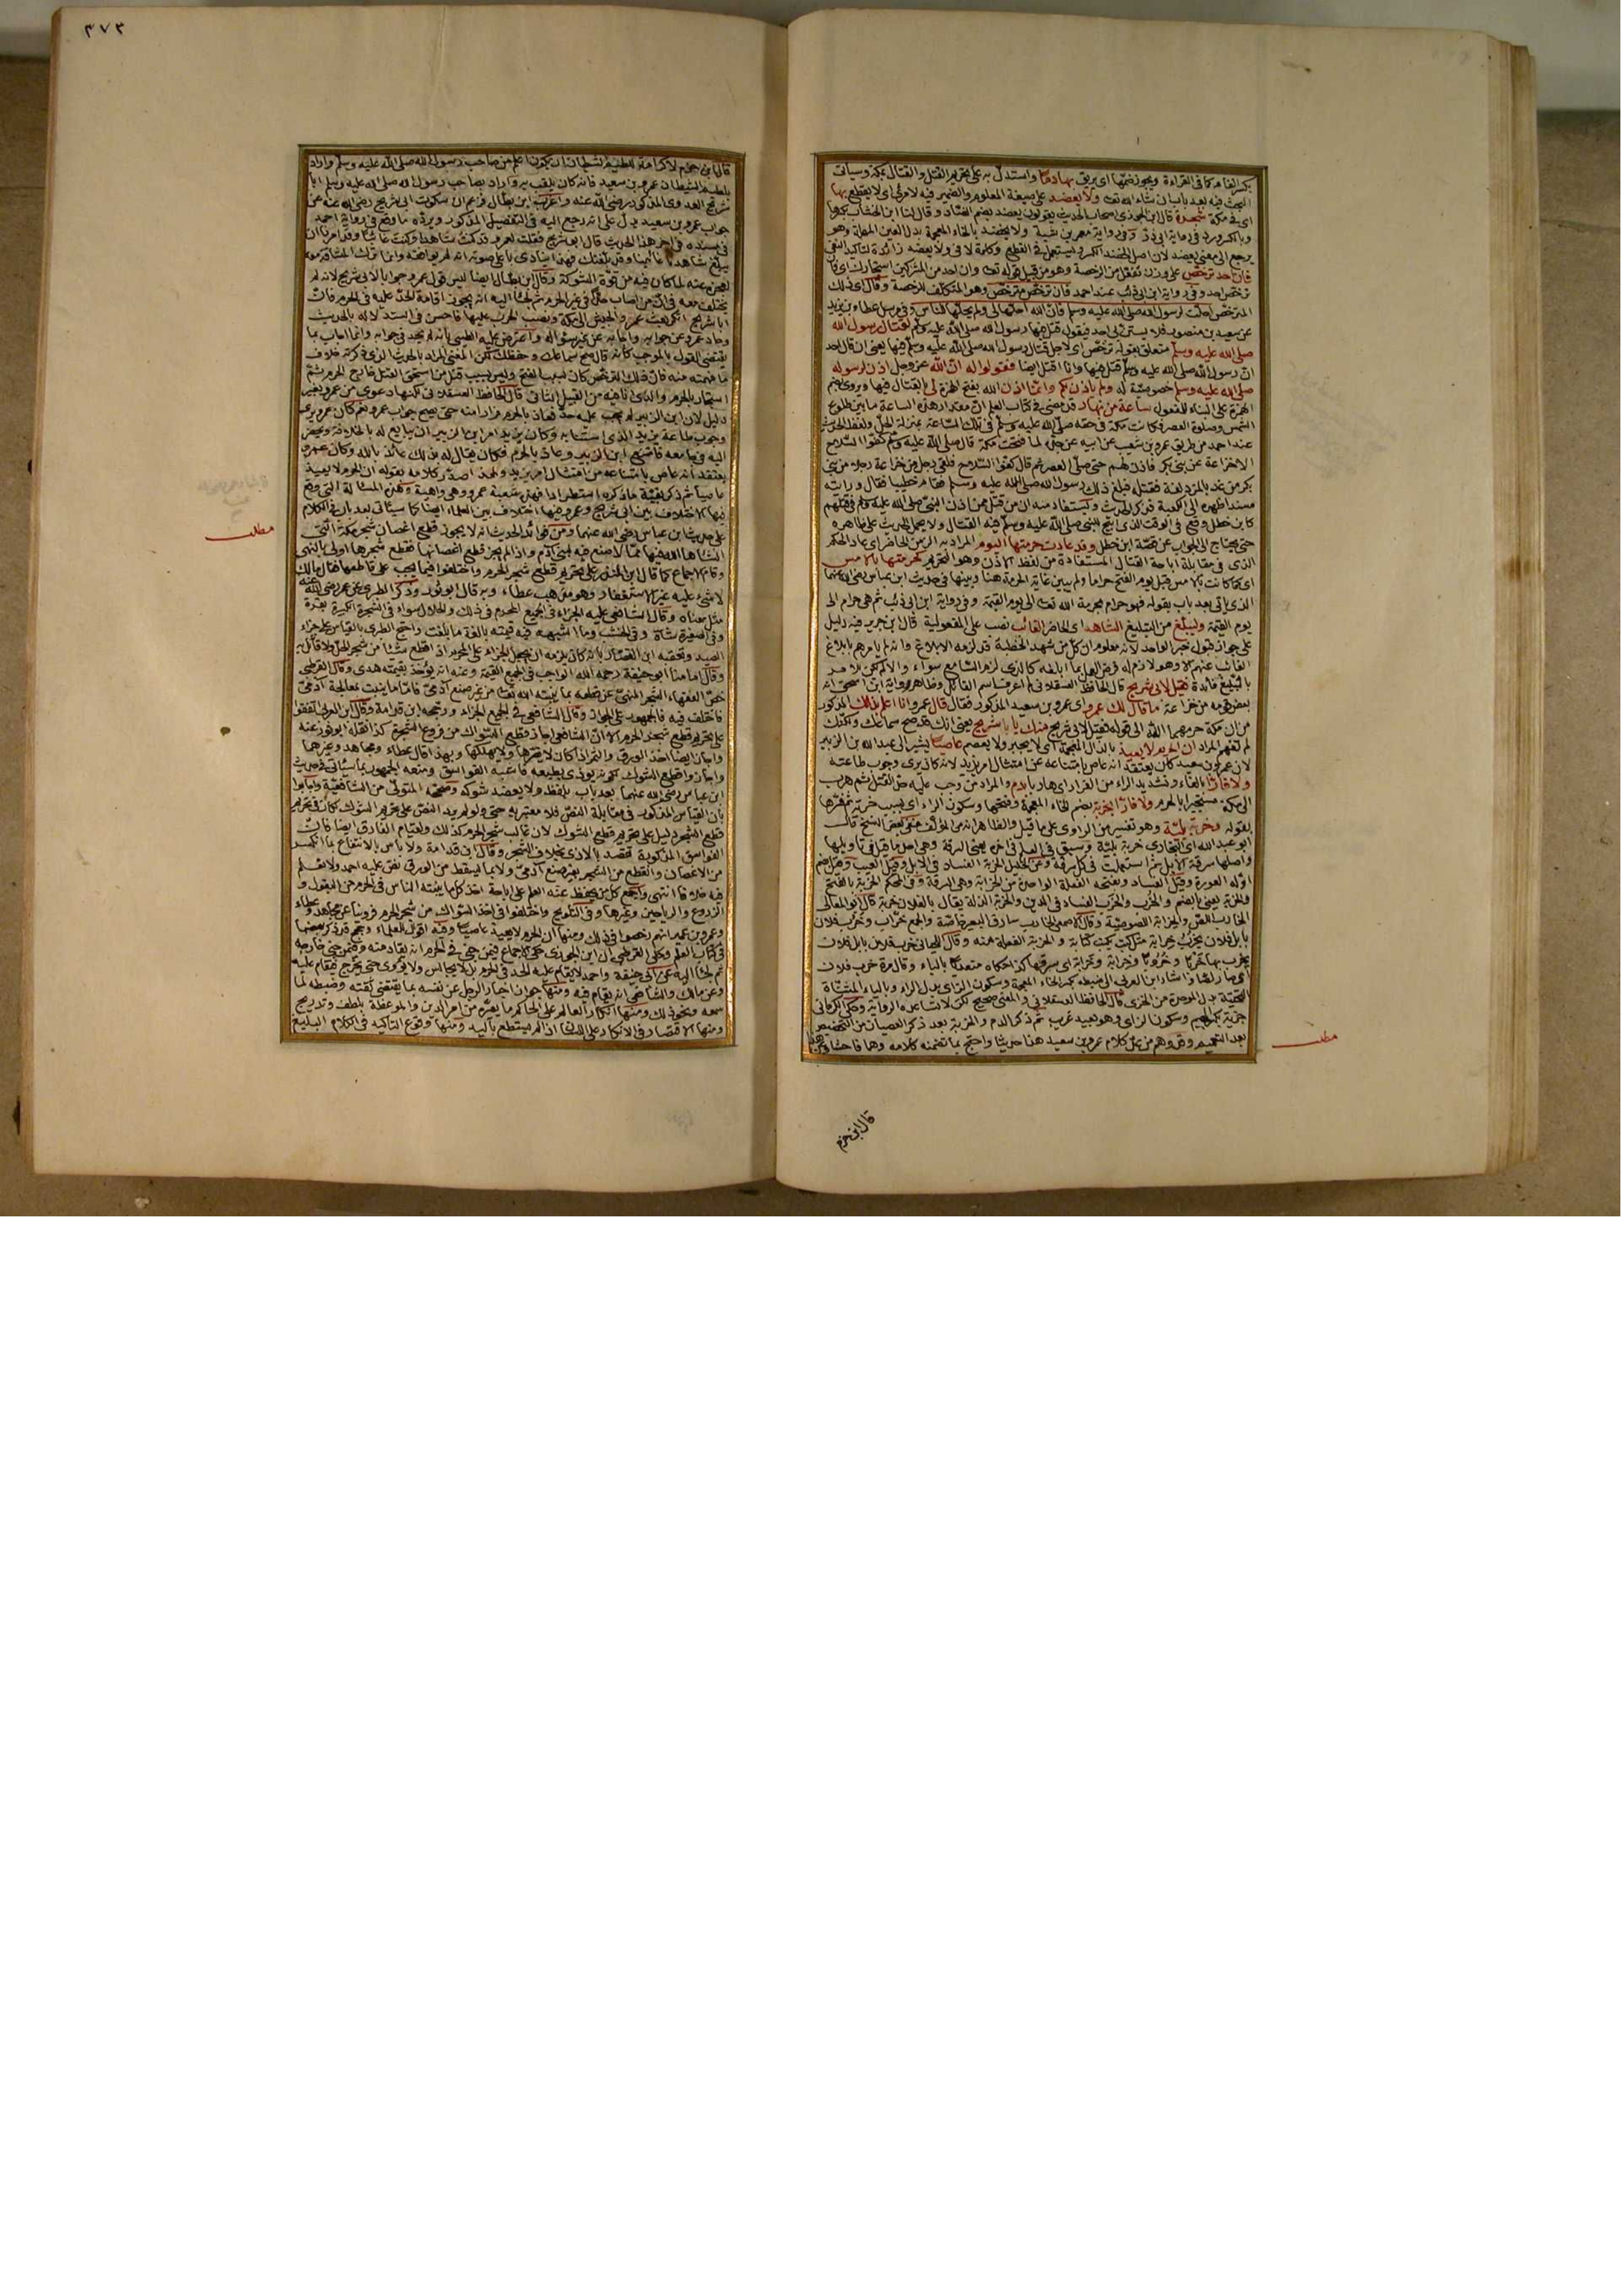 ٣٧٣
بكسر الفاء كما فى القراءة ويجوز ضمها اى يريق بها دما واستدل به على تحريم القتل والقتال بمكة وسيأتى
البحث فيه بعد باب ان شاء الله تعالى ولا يعضد على صيغة المعلوم والضمير فيه لامرئ اى لا يقطع بها
اى فى مكة شجرة قال ابن الجوزى اصحاب الحديث يقولون يعضد بضم الضاد وقال لنا ابن الخشاب بكسرها
يرجع الى معنى يعضد لان اصل الخضد الكسر ويستعمل فى القطع وكلمة لا فى ولا يعضد زائدة لتأكيد النفى
فان احد ترخص على وزن تفعل من الرخصة وهو من قبيل قوله تعالى وان احد من المشركين استجارك اى فان
ترخص احد وفى رواية ابن ابى ذئب عند احمد فان ترخص مترخص وهو المتكلف للرخصة وقال اى ذلك
المترخص احلت لرسول الله صلى الله عليه وسلم فان الله احلها لى ولم يحلها للناس وفى مرسل عطاء بن يزيد
عن سعيد بن منصور فلا يستن بى احد فيقول قتل فيها رسول الله صلى الله عليه وسلم لقتال رسول الله
صلى الله عليه وسلم متعلق بقوله ترخص اى لاجل قتال رسول الله صلى الله عليه وسلم فيها يعنى ان قال احد
ان رسول الله صلى الله عليه وسلم قتل فيها وانا اقتل ايضا فقولوا له ان الله عز وجل اذن لرسوله
صلى الله عليه وسلم خصوصية له ولم يأذن لكم وانما اذن الله بفتح الهمزة لى بالقتال فيها ويروى بضم
الهمزة على البناء للمفعول ساعة من نهار قد مضى فى كتاب العلم ان مقدار هذه الساعة ما بين طلوع
الشمس وصلوة العصر فكانت مكة فى حقه صلى الله عليه وسلم فى تلك الساعة بمنزلة الحل ولفظ الحديث
عند احمد من طريق عمرو بن شعيب عن ابيه عن جده لما فتحت مكة قال صلى الله عليه وسلم كفوا السلاح
الا خزاعة عن بنى بكر فاذن لهم حتى صلى العصر ثم قال كفوا السلاح فلقى رجل من خزاعة رجلا من بنى
بكر من غد بالمزدلفة فقتله فبلغ ذلك رسول الله صلى الله عليه وسلم فقام خطيبا فقال ورأيته
مسندا ظهره الى الكعبة فذكر الحديث ويستفاد منه ان من قتل ممن اذن النبى صلى الله عليه وسلم فى قتلهم
كابن خطل وقع فى الوقت الذى ابيح للنبى صلى الله عليه وسلم فيه القتال ولا يحمل الحديث على ظاهره
حتى يحتاج الى الجواب عن قصة ابن خطل وقد عادت حرمتها اليوم المراد به الزمن الحاضر اى عاد الحكم
الذى فى مقابلة اباحة القتال المستفادة من لفظ الاذن وهو التحريم كحرمتها بالامس
اى كما كانت بالامس قبل يوم الفتح حراما ولم يبين غاية الحرمة هنا وبينها فى حديث ابن عباس رضى الله عنهما
الذى يأتى بعد باب بقوله فهو حرام بحرمة الله تعالى الى يوم القيمة وفى رواية ابن ابى ذئب ثم هى حرام الى
يوم القيمة وليبلغ من التبليغ الشاهد اى الحاضر الغائب نصب على المفعولية قال ابن جرير فيه دليل
على جواز قبول خبر الواحد لانه معلوم ان كل من شهد الخطبة قد لزمه الابلاغ وانه لم يأمرهم بابلاغ
الغائب عنهم الا وهو لازم له فرض العمل بما ابلغه كالذى لزم السامع سواء والا لم يكن للامر
بالتبليغ فائدة فقيل لابى شريح قال الحافظ العسقلانى لم اعرف اسم القائل وظاهر رواية ابن اسحق انه
بعض قومه من خزاعة ما قال لك عمرو اى عمرو بن سعيد المذكور فقال قال عمرو انا اعلم بذلك المذكور
من ان مكة حرمها الله الى قوله فقيل لابى شريح منك يا با شريح يعنى انك قد صح سماعك ولكنك
لم تفهم المراد ان الحرم لا يعيذ بالذال المعجمة اى لا يجير ولا يعصم عاصيا يشير الى عبد الله بن الزبير
لان عمرو بن سعيد كان يعتقد انه عاص بامتناعه عن امتثال امر يزيد لانه كان يرى وجوب طاعته
ولا فارا بالفاء وتشديد الراء من الفرار اى هاربا بدم والمراد من وجب عليه حد القتل ثم هرب
الى مكة مستجيرا بالحرم ولا فارا بخربة بضم الخاء المعجمة وفتحها وسكون الراء اى بسبب خربة ثم فسرها
بقوله وخربة بلية وهو تفسير من الراوى على ما قيل والظاهر انه من المؤلف ففى بعض النسخ قال
ابو عبد الله اى البخارى خربة بلية وسبق فى العلم فى اخره يعنى السرقة وهى احد ما قيل فى تأويلها
واصلها سرقة الابل ثم استعملت فى كل سرقة وعن الخليل الخربة الفساد فى الابل وقيل العيب وقيل بضم
اوله العورة وقيل الفساد وبفتحه الفعلة الواحدة من الخرابة وهى السرقة وفى المحكم الخربة بالفتح
والخربة يعنى بالضم والخرب والخرب الفساد فى الدين والخربة الذلة يقال بالفلان خربة قال ابو المعالى
الخارب اللص والخرابة اللصوصية وقال الاصمعى الخارب سارق البعير خاصة والجمع خراب وخرب فلان
بابل فلان يخرب خرابة مثل كتب يكتب كتابة والخربة الفعلة منه وقال اللحيانى خرب فلان بابل فلان
يخرب بها خربا وخروبا وخرابة وخرابة اى سرقها كذا حكاه متعديا بالباء وقال مرة خرب فلان
اى صار لصا واشار ابن العربى الى ضبطه بكسر الخاء المعجمة وسكون الزاى بدل الراء وبالياء المثناة
التحتية بدل الموحدة من الخزى قال الحافظ العسقلانى والمعنى صحيح لكن لا تساعده الرواية وحكى الكرمانى
جزية بكسر الجيم وسكون الزاى وهو بعيد غريب ثم ذكر الدم والخربة بعد ذكر العصيان من التخصيص
بعد التعميم وقد وهم من عد كلام عمرو بن سعيد هذا حديثا واحتج بما تضمنه كلامه وهما فاحشا
مطلب
قال ابن حزم
قال ابن حزم لا كرامة للطيم الشيطان ان يكون اعلم من صاحب رسول الله صلى الله عليه وسلم واراد
بلطيم الشيطان عمرو بن سعيد فانه كان يلقب به واراد بصاحب رسول الله صلى الله عليه وسلم ابا
شريح العدوى المذكور رضى الله عنه واغرب ابن بطال فزعم ان سكوت ابى شريح رضى الله عنه عن
جواب عمرو بن سعيد يدل على انه رجع اليه فى التفصيل المذكور ويرده ما وقع فى رواية احمد
فى مسنده فى اخر هذا الحديث قال ابو شريح فقلت لعمرو قد كنت شاهدا وكنت غائبا وقد امرنا ان
يبلغ شاهدنا غائبنا وقد بلغتك فهذا ينادى باعلى صوته انه لم يوافقه وانما ترك المشاققة معه
لعجزه عنه لما كان فيه من قوة الشوكة وقال ابن بطال ايضا ليس قول عمرو جوابا لابى شريح لانه لم
يختلف معه فى ان من اصاب حدا فى غير الحرم ثم لجأ اليه انه يجوز اقامة الحد عليه فى الحرم فان
ابا شريح انكر بعث عمرو الجيش الى مكة ونصب الحرب عليها فاحسن فى استدلاله بالحديث
وحاد عمرو عن جوابه واجابه عن غير سؤاله واعترض عليه الطيبى بأنه لم يحد فى جوابه وانما اجاب بما
يقتضى القول بالموجب كأنه قال صح سماعك وحفظك لكن المعنى المراد بالحديث الذى ذكرته خلاف
ما فهمته منه فان ذلك الترخص كان بسبب الفتح وليس بسبب قتل من استحق القتل خارج الحرم ثم
استجار بالحرم والذى انا فيه من القبيل الثانى قال الحافظ العسقلانى لكنها دعوى من عمرو بغير
دليل لان ابن الزبير لم يجب عليه حد فعاذ بالحرم فرارا منه حتى يصح جواب عمرو نعم كان عمرو يرى
وجوب طاعة يزيد الذى استنابه وكان يزيد امر ابن الزبير ان يبايع له بالخلافة ويحضر
اليه فى جامعة فامتنع ابن الزبير وعاذ بالحرم فكان يقال له بذلك عائذ بالله وكان عمرو
يعتقد انه عاص بامتناعه من امتثال امر يزيد ولهذا صدر كلامه بقوله ان الحرم لا يعيذ
عاصيا ثم ذكر بقية ما ذكره استطرادا فهذه شبهة عمرو وهى واهية وهذه المسألة التى وقع
فيها الاختلاف بين ابى شريح وعمرو فيها اختلاف بين العلماء ايضا كما سيأتى بعد باب فى الكلام
على حديث ابن عباس رضى الله عنهما ومن فوائد الحديث انه لا يجوز قطع اغصان شجر مكة التى
انشأها الله فيها مما لا صنع فيه لبنى آدم واذا لم يجز قطع اغصانها فقطع شجرها اولى بالنهى
وقام الاجماع كما قال ابن المنذر على تحريم قطع شجر الحرم واختلفوا فيما يجب على قاطعها فقال مالك
لا شىء عليه غير الاستغفار وهو مذهب عطاء وبه قال ابو ثور وذكر الطبرى عن عمر رضى الله عنه
مثل معناه وقال الشافعى عليه الجزاء فى الجميع المحرم فى ذلك والحلال سواء فى الشجرة الكبيرة بقرة
وفى الصغيرة شاة وفى الخشب وما اشبهه فيه قيمته بالغة ما بلغت واحتج الطبرى بالقياس على جزاء
الصيد وتعقبه ابن القصار بأنه كان يلزمه ان يجعل الجزاء على المحرم اذا قطع شيئا من شجر الحل ولا قائل به
وقال امامنا ابو حنيفة رحمه الله الواجب فى الجميع القيمة وعنه انه يؤخذ بقيمته هدى وقال القرطبى
خص الفقهاء الشجر المنهى عن قطعه بما ينبته الله تعالى من غير صنع آدمى فاما ما ينبت بمعالجة آدمى
فاختلف فيه فالجمهور على الجواز وقال الشافعى فى الجميع الجزاء ورجحه ابن قدامة وقال ابن العربى اتفقوا
على تحريم قطع شجر الحرم الا ان الشافعى اجاز قطع السواك من فروع الشجرة كذا نقله ابو ثور عنه
واجاز ايضا اخذ الورق والثمر اذا كان لا يضرها ولا يهلكها وبهذا قال عطاء ومجاهد وغيرهما
واجازوا قطع الشوك لكونه يؤذى بطبعه فاشبه الفواسق ومنعه الجمهور لما سيأتى فى حديث
ابن عباس رضى الله عنهما بعد باب بلفظ ولا يعضد شوكه وصححه المتولى من الشافعية واجابوا
بأن القياس المذكور فى مقابلة النص فلا معتبر به حتى ولو لم يرد النص على تحريم الشوك لكان فى تحريم
قطع الشجر دليل على تحريم قطع الشوك لان غالب شجر الحرم كذلك ولقيام الفارق ايضا فان
الفواسق المذكورة تقصد بالاذى بخلاف الشجر وقال ابن قدامة ولا بأس بالانتفاع بما انكسر
من الاغصان وانقطع من الشجر بغير صنع آدمى ولا بما يسقط من الورق نص عليه احمد ولا نعلم
فيه خلافا انتهى واجمع كل من يحفظ عنه العلم على اباحة اخذ كل ما ينبته الناس فى الحرم من البقول و
الزروع والرياحين وغيرها وفى التلويح واختلفوا فى اخذ السواك من شجر الحرم فروينا عن مجاهد وعطاء
وعمرو بن دينار انهم رخصوا فى ذلك ومنها ان الحرم لا يعيذ عاصيا وفيه اقوال للعلماء وحجج قد ذكر بعضها
فى كتاب العلم وحكى القرطبى ان ابن الجوزى حكى الاجماع فيمن جنى فى الحرم انه يقاد منه وفيمن جنى خارجه
ثم لجأ اليه عن ابى حنيفة واحمد لا يقام عليه الحد فى الحرم بل لا يجالس ولا يؤوى حتى يخرج فيقام عليه
وعن مالك والشافعى انه يقام فيه ومنها جواز اخبار الرجل عن نفسه بما يقتضى ثقته وضبطه لما
سمعه ونحو ذلك ومنها انكار العالم على الحاكم ما يغيره من امر الدين والموعظة بلطف وتدريج
ومنها الاقتصار فى الانكار على اللسان اذا لم يستطع باليد ومنها وقوع التأكيد فى الكلام البليغ
مطلب